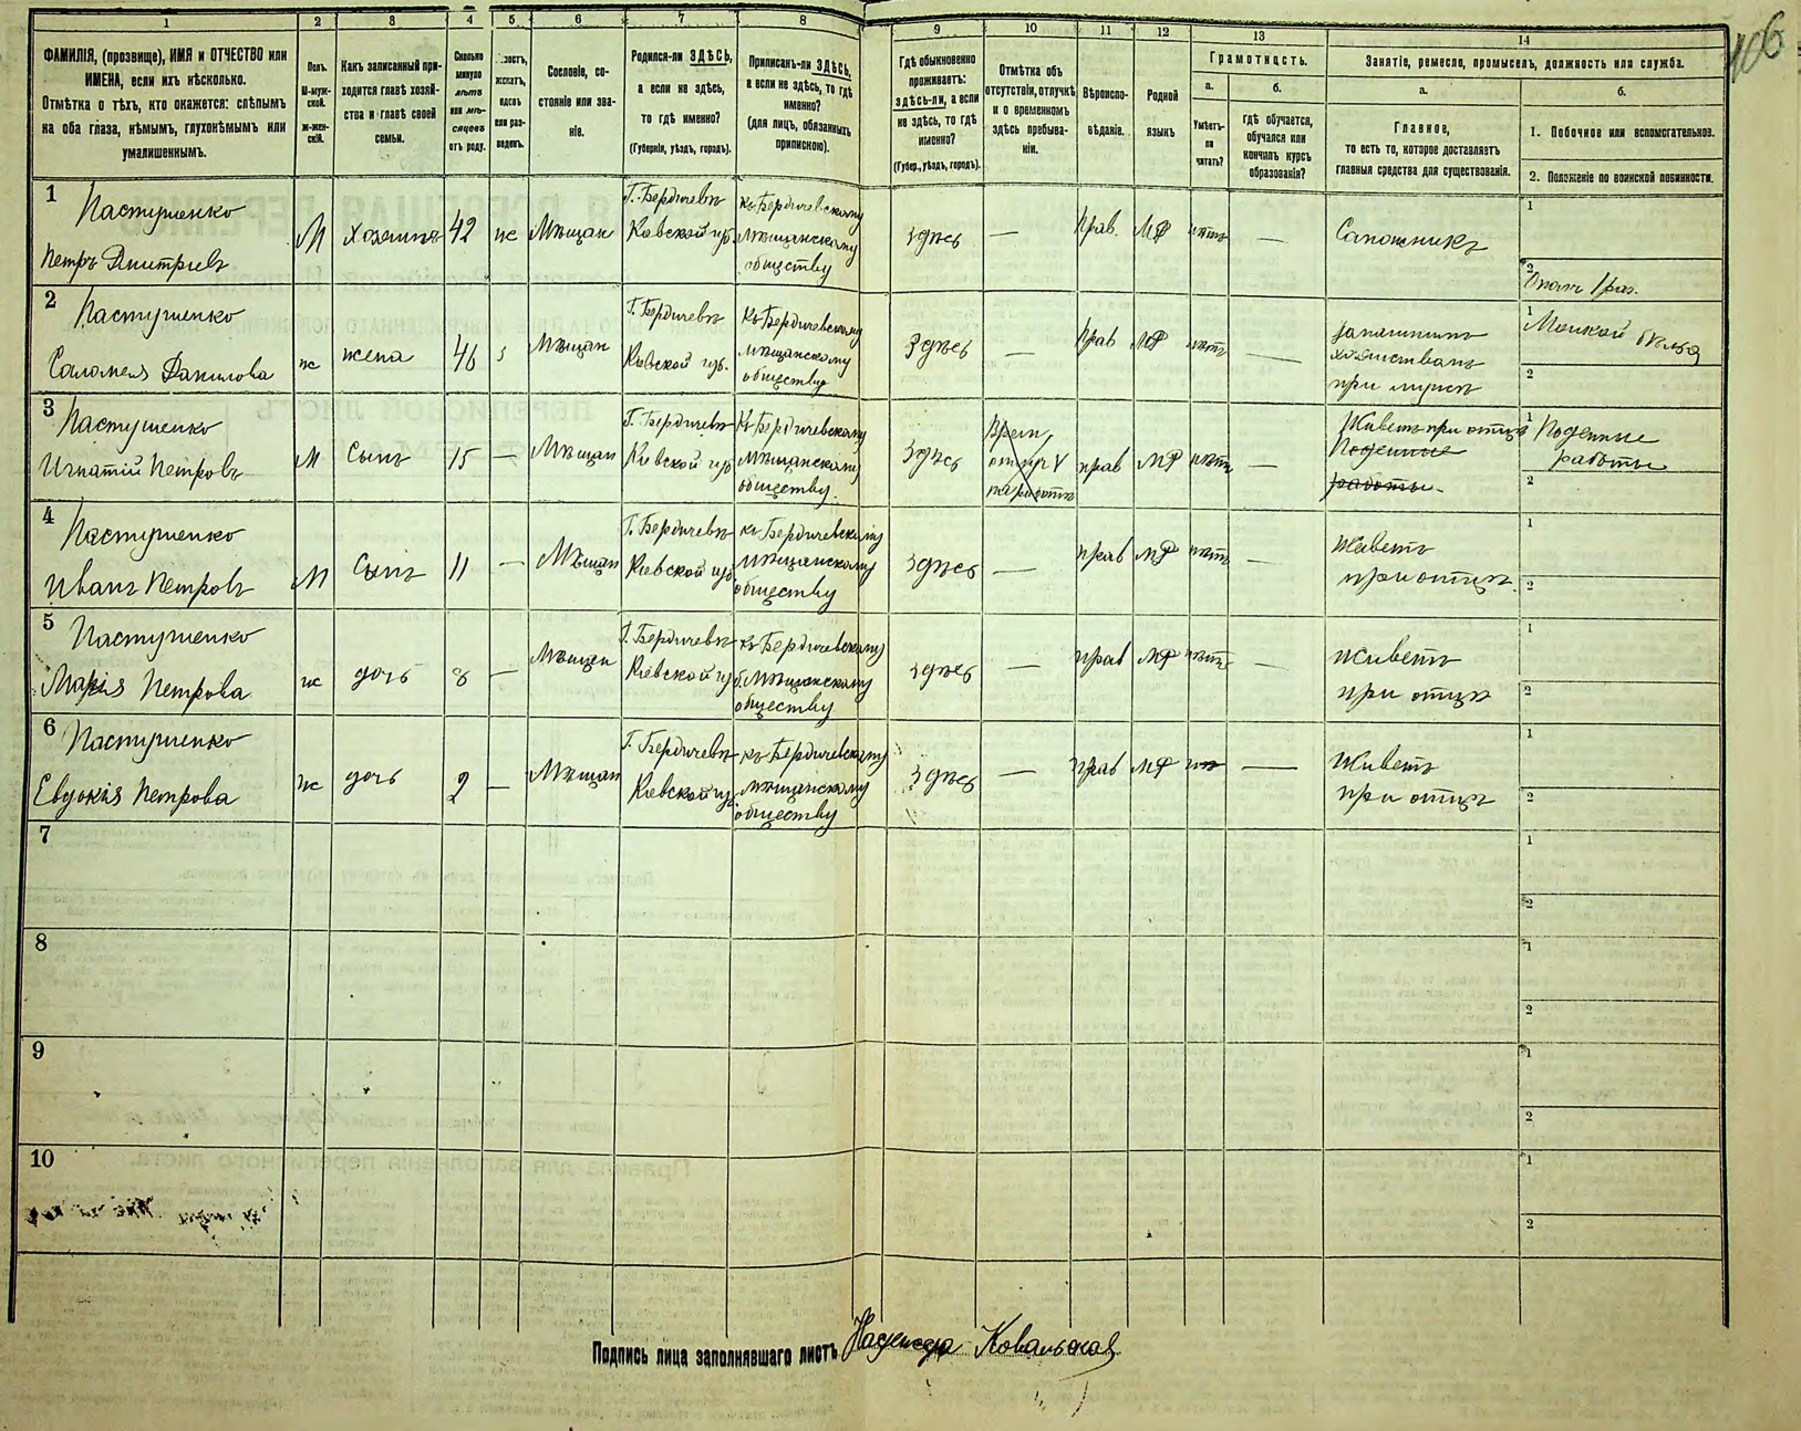 106
1 2 3 4 5 6 7 8 9 10 11 12 13 14
ФАМИЛІЯ, (прозвище), ИМЯ и ОТЧЕСТВО или
ИМЕНА, если ихъ нѣсколько.
Отмѣтка о тѣхъ, кто окажется: слѣпымъ
на оба глаза, нѣмымъ, глухонѣмымъ или
умалишеннымъ.
Полъ.
М-муж-
ской.
Ж-жен-
скій.
Какъ записанный при-
ходится главѣ хозяй-
ства и главѣ своей
семьи.
Сколько
минуло
лѣтъ
или мѣ-
сяцевъ
отъ роду.
женатъ,
вдовъ
или раз-
веденъ.
Сословіе, со-
стояніе или зва-
ніе.
Родился-ли ЗДѢСЬ,
а если не здѣсь,
то гдѣ именно?
(Губернія, уѣздъ, городъ).
Приписанъ-ли ЗДѢСЬ,
а если не здѣсь, то гдѣ
именно?
(для лицъ, обязанныхъ
припискою).
Гдѣ обыкновенно
проживаетъ:
здѣсь-ли, а если
не здѣсь, то гдѣ
именно?
(Губер., уѣздъ, городъ).
Отмѣтка объ
отсутствіи, отлучкѣ
и о временномъ
здѣсь пребыва-
ніи.
Вѣроиспо-
вѣданіе.
Родной
языкъ
Грамотность.
а.
Умѣетъ-
ли
читать?
б.
гдѣ обучается,
обучался или
кончилъ курсъ
образованія?
Занятіе, ремесло, промыселъ, должность или служба.
а.
Главное,
то есть то, которое доставляетъ
главныя средства для существованія.
б.
1. Побочное или вспомогательное.
2. Положеніе по воинской повинности.
1
Пастушенко
Петръ Дмитріевъ
М хозяинъ 42 же Мѣщан
Г. Бердичевъ
Кіевской губ
къ Бердичевскому
мѣщанскому
обществу
здѣсь — Прав. МР нѣтъ — Сапожникъ
1
2
Ополч 1 раз.
2
Пастушенко
Саломея Данилова
ж жена 46 з Мѣщан
Г. Бердичевъ
Кіевской губ.
Къ Бердичевскому
мѣщанскому
обществу
здѣсь — Прав МР нѣтъ —
при мужѣ
1 Мойкой бѣлья
2
3
Пастушенко
Игнатій Петровъ
М Сынъ 15 — Мѣщан
Г. Бердичевъ
Кіевской губ
Къ Бердичевскому
Мѣщанскому
обществу.
здѣсь
на работѣ
прав МР нѣтъ —
Живетъ при отцѣ
Поденные
работы.
1 Поденные
работы
2
4
Пастушенко
Иванъ Петровъ
М Сынъ 11 — Мѣщан
Г. Бердичевъ
Кіевской губ
къ Бердичевскому
мѣщанскому
обществу
здѣсь — прав МР нѣтъ —
Живетъ
при отцѣ.
1
2
5
Пастушенко
Марія Петрова
ж дочь 8 — Мѣщан
Г. Бердичевъ
Кіевской губ.
къ Бердичевскому
Мѣщанскому
обществу
здѣсь — прав МР нѣтъ —
Живетъ
при отцѣ
1
2
6
Пастушенко
Евдокія Петрова
ж дочь 2 — Мѣщан
Г. Бердичевъ
Кіевской губ.
къ Бердичевскому
мѣщанскому
обществу
здѣсь — прав МР —
Живетъ
при отцѣ
1
2
7
1
2
8
1
2
9
1
2
10
1
2
Подпись лица заполнявшаго листъ Надежда Ковальская